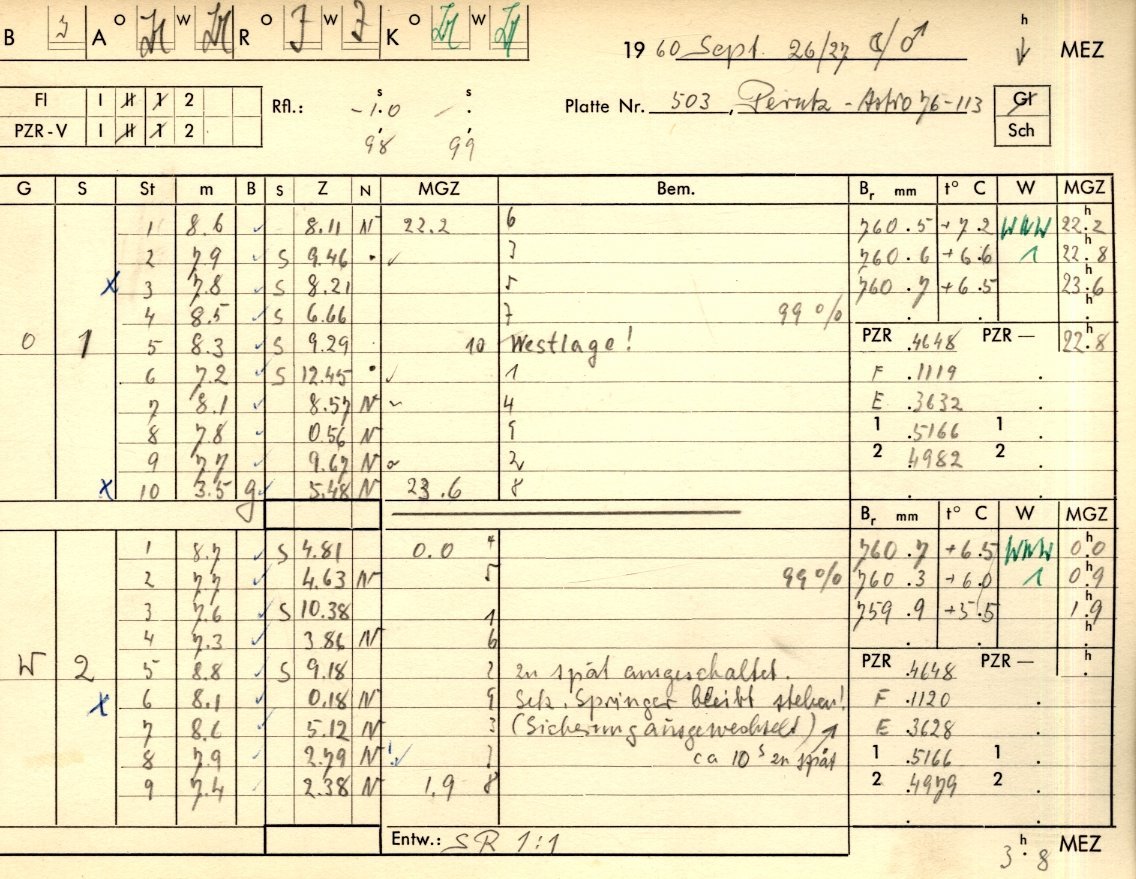 B A O W R O W K O W h
19 60 Sept. 26/27 ☾/♂ MEZ
Fl I II 1 2 Rfl.: s -1.0 s Platte Nr. 503, Perutz - Astro 76-113 Gl
PZR-V I II 1 2 98 99 Sch
G S St m B S Z N MGZ Bem. Br mm t° C W MGZ
1 8.6 ✓ 8.11 N 22.2 6 760.5 +7.2 WNW 22.2 h
2 7.9 ✓ S 9.46 • ✓ 3 760.6 +6.6 1 22.8 h
x 3 7.8 ✓ S 8.21 5 760.7 +6.5 23.6 h
4 8.5 ✓ S 6.66 7 99 % . . . h
0 1 5 8.3 ✓ S 9.29 10 Westlage! PZR .4648 PZR — 22.8 h
6 7.2 ✓ S 12.45 • ✓ 1 F .1119 .
7 8.1 ✓ 8.57 N 4 E .3632 .
8 7.8 ✓ 0.56 N 9 1 .5166 1 .
9 7.7 ✓ 9.67 N 2 2 .4982 2 .
x 10 3.5 g✓ 5.48 N 23.6 8 . .
Br mm t° C W MGZ
1 8.7 ✓ S 4.81 0.0 4 760.7 +6.5 WNW 0.0 h
2 7.7 ✓ 4.63 N 5 99 % 760.3 +6.0 1 0.9 h
3 7.6 ✓ S 10.38 1 759.9 +5.5 1.9 h
4 7.3 ✓ 3.86 N 6 . . . h
W 2 5 8.8 ✓ S 9.18 2 zu spät ausgeschaltet. PZR .4648 PZR — . h
x 6 8.1 ✓ 0.18 N 9 Sek. Springer bleibt stehen! F .1120 .
7 8.6 ✓ 5.12 N 3 (Sicherung ausgewechselt) E .3628 .
8 7.9 ✓ 2.79 N ✓ 7 ca 10 s zu spät 1 .5166 1 .
9 7.4 ✓ 2.38 N 1.9 8 2 .4979 2 .
Entw.: SR 1:1 3.8 h MEZ